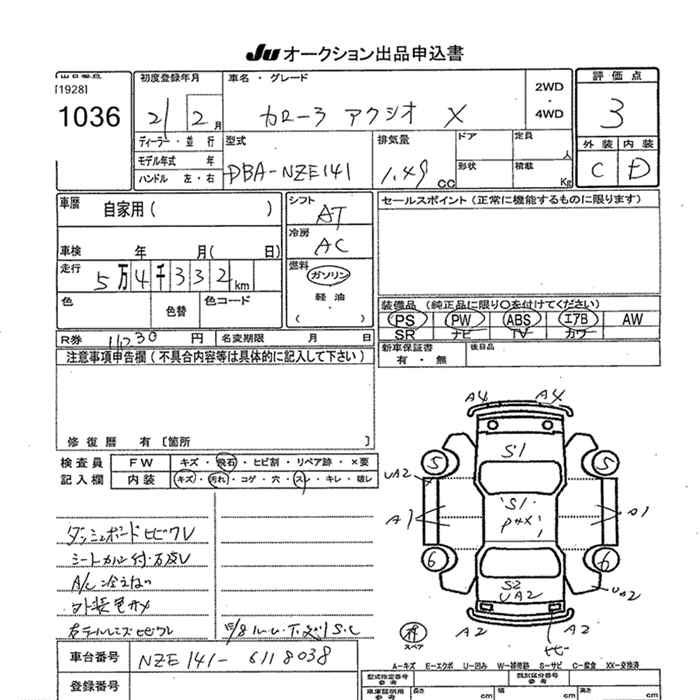 Ju オークション出品申込書
[1928]
1036
初度登録年月
21 2月
車名・グレード
カローラ アクシオ X
2WD
・
4WD
評価点
3
外装 内装
C D
ディーラー・並行
モデル年式 年
ハンドル 左・右
型式
DBA-NZE141
排気量
1.49 cc
ドア
形状
定員 人
積載 Kg
車歴 自家用( )
車検 年 月( 日)
走行 5万4千332km
色
色替
色コード
シフト
AT
冷房
AC
燃料
ガソリン
軽油
( ・ )
セールスポイント (正常に機能するものに限ります)
装備品 (純正品に限り○を付けてください)
PS PW ABS エアB AW
SR ナビ TV カワ
R券 円
名変期限 月 日
新車保証書
有・無
後日品
注意事項申告欄 (不具合内容等は具体的に記入して下さい)
修復歴 有 [箇所 ]
検査員
記入欄
FW キズ・飛石・ヒビ割・リペア跡・×要
内装 キズ・汚れ・コゲ・穴・スレ・キレ・破レ
ダッシュボードヒビワレ
A/C冷えない
外装色サメ
右テールレンズヒビワレ
A4 A4
S1
5 5
UA2
A1 A1
S1
6 6
S2
UA2
UA2
A2 A2
ヒビ
スペア
A-キズ E-エクボ U-凹み W-補修跡 S-サビ C-腐食 XX-交換済
車台番号 NZE141-6118038
登録番号
型式指定番号
参考
類別区分番号
参考
長さ cm
幅 cm
高さ cm